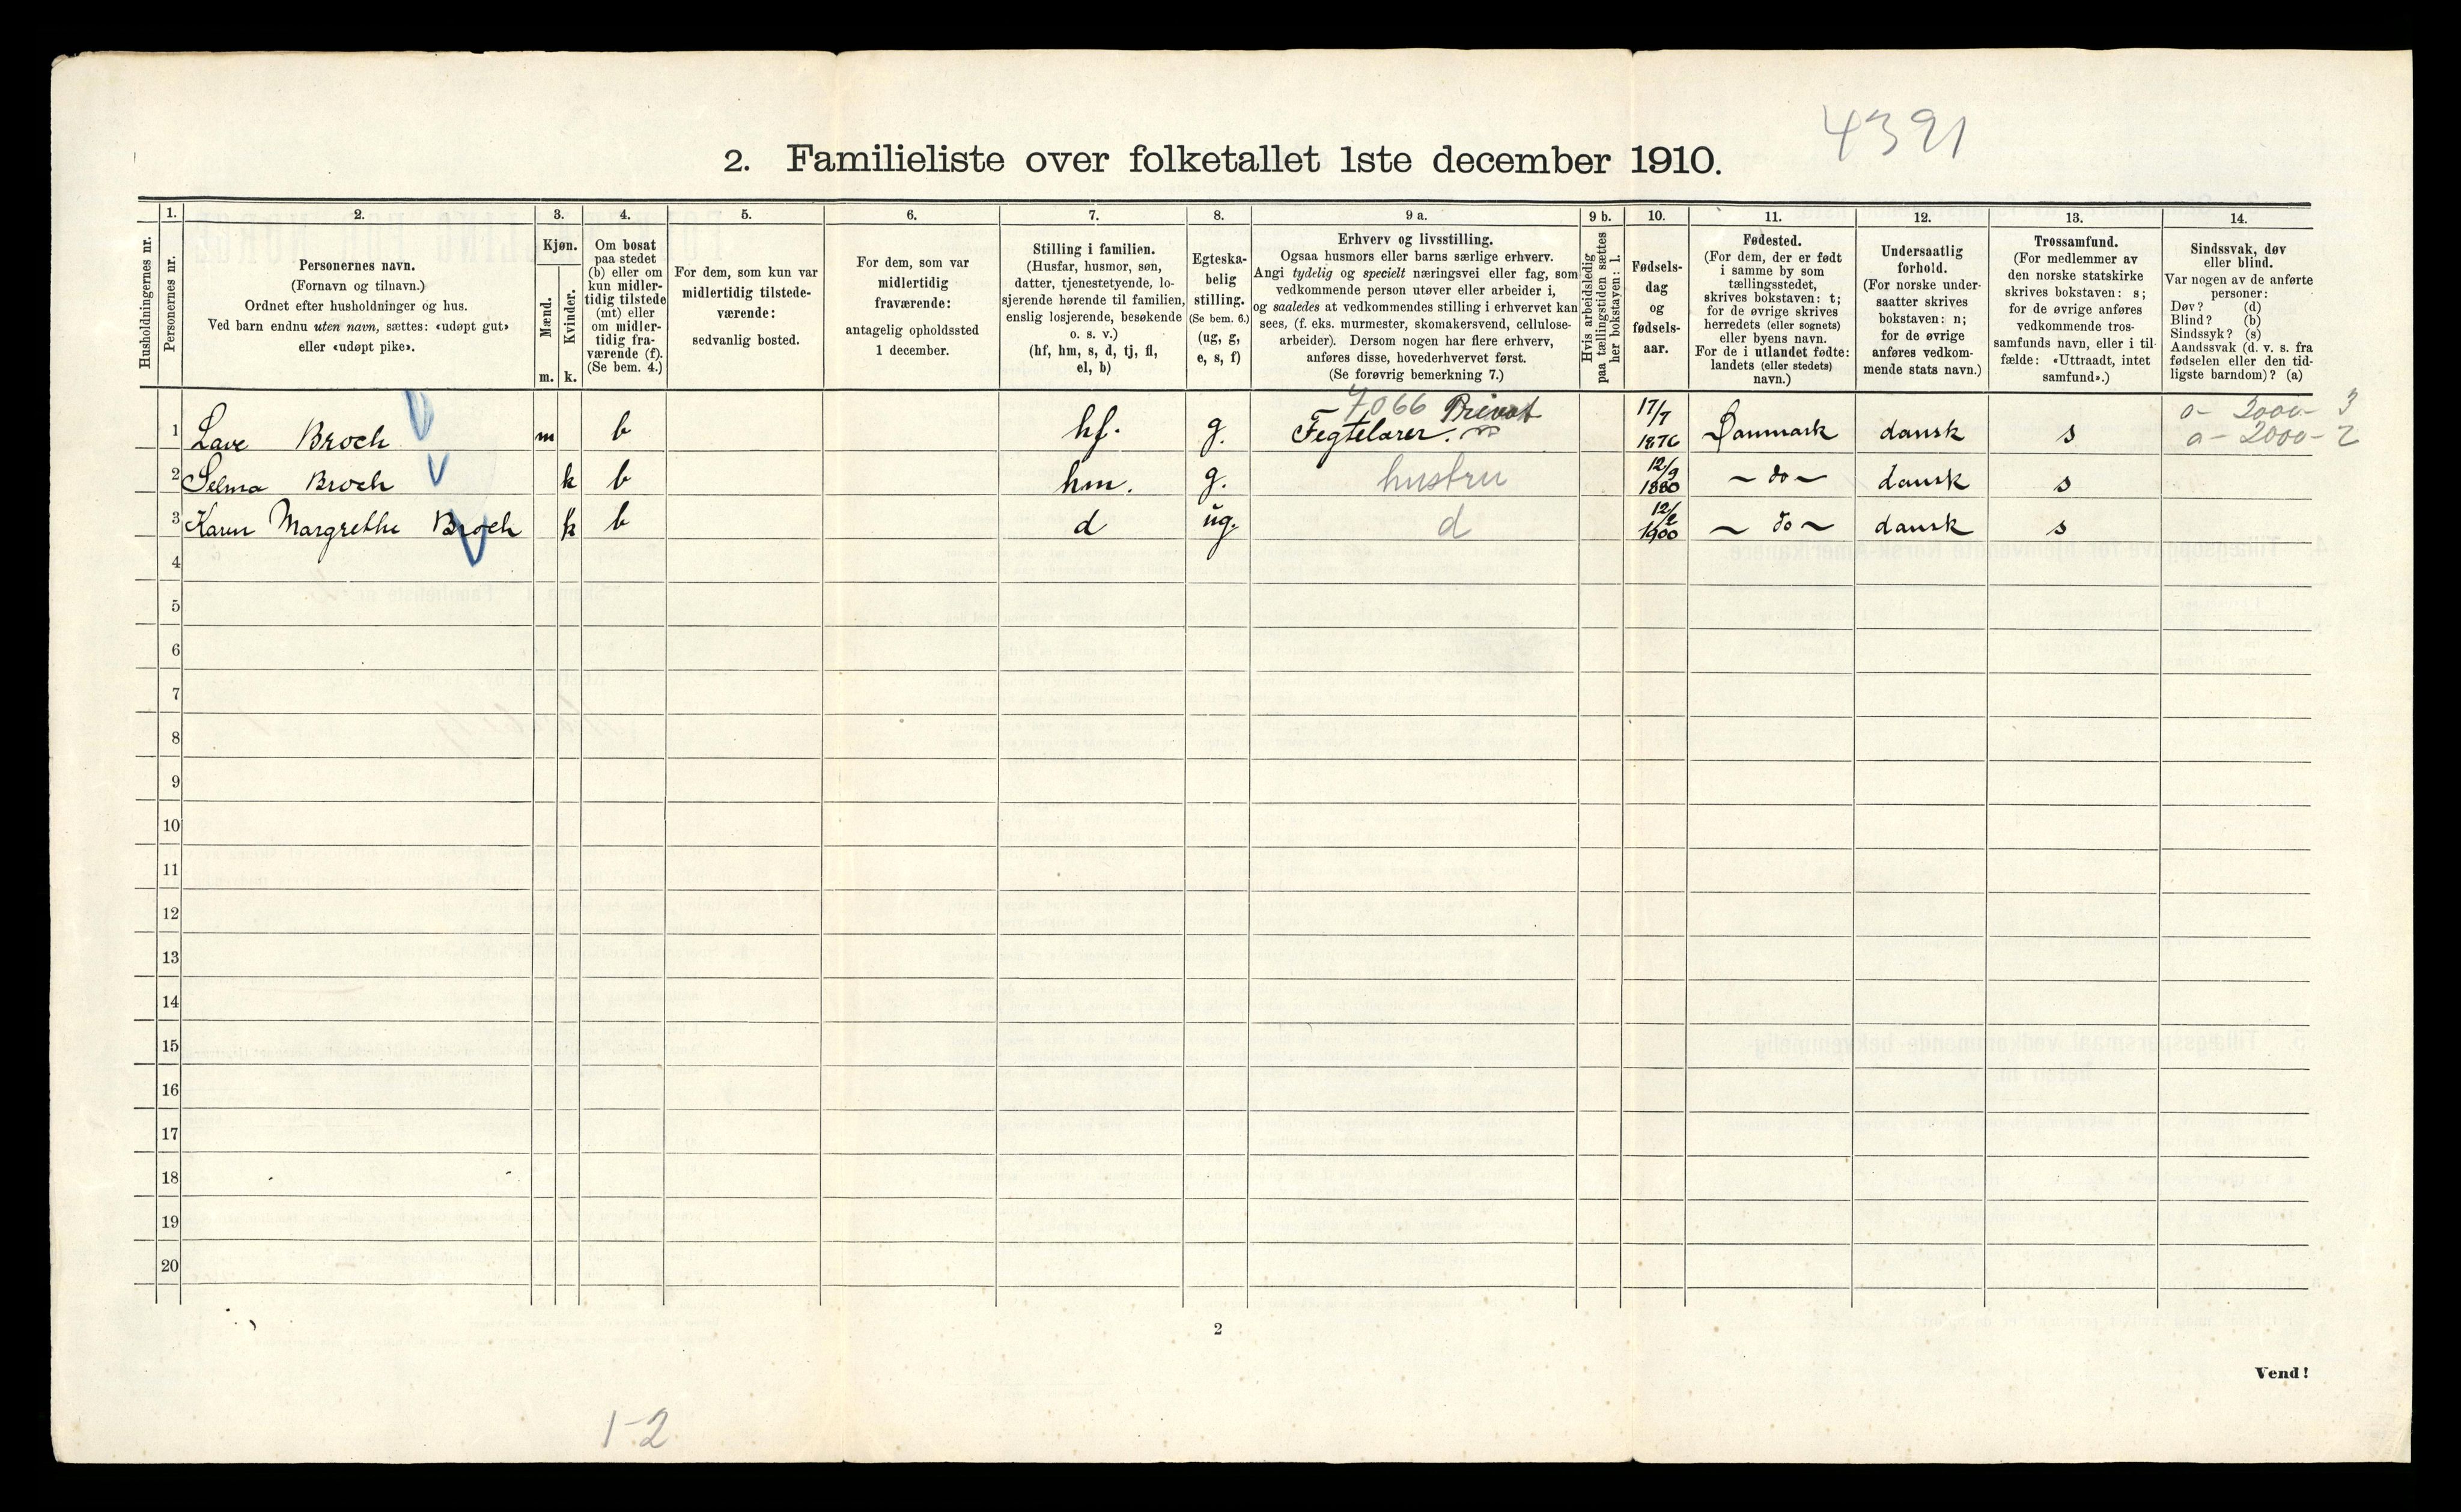 4391
2. Familieliste over folketallet 1ste december 1910.
Husholdningernes nr.
1.
Personernes nr.
2.
Personernes navn.
(Fornavn og tilnavn.)
Ordnet efter husholdninger og hus.
Ved barn endnu uten navn, sættes: «udøpt gut»
eller «udøpt pike».
3.
Kjøn.
Mænd.
Kvinder.
m. k.
4.
Om bosat
paa stedet
(b) eller om
kun midler-
tidig tilstede
(mt) eller
om midler-
tidig fra-
værende (f).
(Se bem. 4.)
5.
For dem, som kun var
midlertidig tilstede-
værende:
sedvanlig bosted.
6.
For dem, som var
midlertidig
fraværende:
antagelig opholdssted
1 december.
7.
Stilling i familien.
(Husfar, husmor, søn,
datter, tjenestetyende, lo-
sjerende hørende til familien,
enslig losjerende, besøkende
o. s. v.)
(hf, hm, s, d, tj, fl,
el, b)
8.
Egteska-
belig
stilling.
(Se bem. 6.)
(ug, g,
e, s, f)
9 a.
Erhverv og livsstilling.
Ogsaa husmors eller barns særlige erhverv.
Angi tydelig og specielt næringsvei eller fag, som
vedkommende person utøver eller arbeider i,
og saaledes at vedkommendes stilling i erhvervet kan
sees, (f. eks. murmester, skomakersvend, cellulose-
arbeider). Dersom nogen har flere erhverv,
anføres disse, hovederhvervet først.
(Se forøvrig bemerkning 7.)
9 b.
Hvis arbeidsledig
paa tællingstiden sættes
her bokstaven: l.
10.
Fødsels-
dag
og
fødsels-
aar.
11.
Fødested.
(For dem, der er født
i samme by som
tællingsstedet,
skrives bokstaven: t;
for de øvrige skrives
herredets (eller sognets)
eller byens navn.
For de i utlandet fødte:
landets (eller stedets)
navn.)
12.
Undersaatlig
forhold.
(For norske under-
saatter skrives
bokstaven: n;
for de øvrige
anføres vedkom-
mende stats navn.)
13.
Trossamfund.
(For medlemmer av
den norske statskirke
skrives bokstaven: s;
for de øvrige anføres
vedkommende tros-
samfunds navn, eller i til-
fælde: «Uttraadt, intet
samfund».)
14.
Sindssvak, døv
eller blind.
Var nogen av de anførte
personer:
Døv? (d)
Blind? (b)
Sindssyk? (s)
Aandssvak (d. v. s. fra
fødselen eller den tid-
ligste barndom)? (a)
7066 Privat 17/7 o- 3000- 3
1 Lave Broch m b hf. g. Fegtelærer. 1876 Danmark dansk s o- 2000- 2
2 Selma Broch k b hm. g. hustru 12/9 1880 ~ do ~ dansk s
3 Karen Margrethe Broch k b d ug. d 12/2 1900 ~ do ~ dansk s
4
5
6
7
8
9
10
11
12
13
14
15
16
17
18
19
20
2
Vend!
1-2